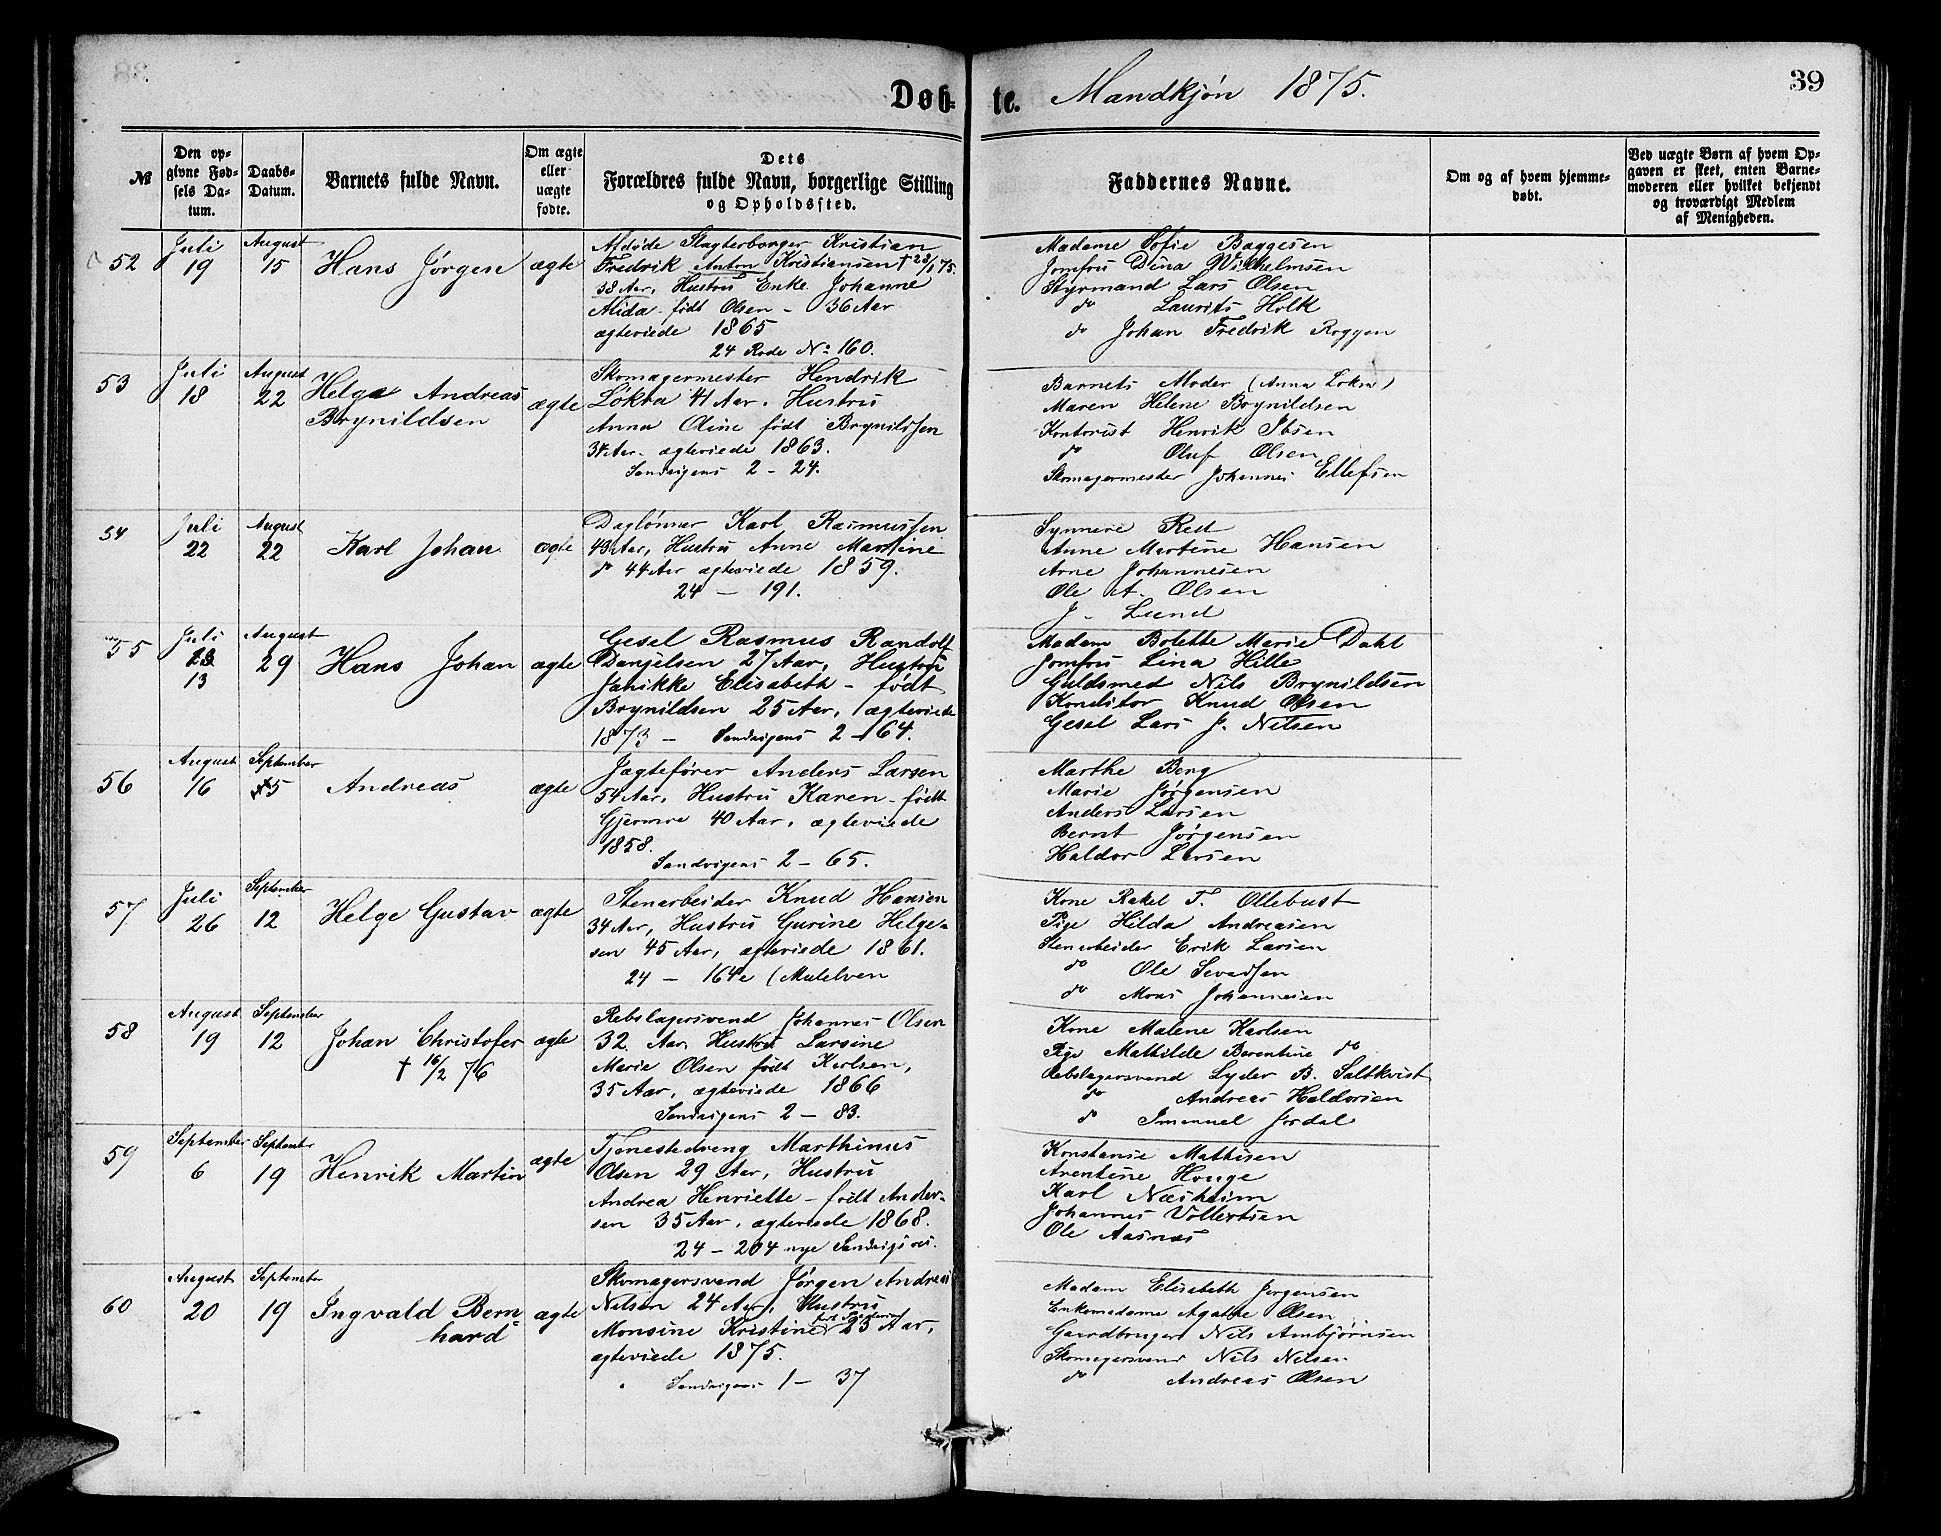 Døbte. Mandkjøn 1875.
39
№
Den opgivne Fødsels Datum.
Daabs-Datum.
Barnets fulde Navn.
Om ægte eller uægte fødte.
Dets Forældres fulde Navn, borgerlige Stilling og Opholdssted.
Faddernes Navne.
Om og af hvem hjemmedøbt.
Ved uægte Børn af hvem Opgaven er skeet, enten Barnemoderen eller hvilket bekjendt og troværdigt Medlem af Menigheden.
52
Juli 19
August 15
Hans Jørgen
ægte
Afdøde Slagterborger Kristian
Fredrik Anton Kristiansen † 23/1 75.
38 Aar, Hustru Enke Johanne
Alida født Olsen - 36 Aar
ægteviede 1865
24 Rode No 160.
Madame Sofie Baggesen
Jomfru Dina Wilhelmsen
Styrmand Lars Olsen
do Laurits Holk
do Johan Fredrik Roggen
53
Juli 18
August 22
Helge Andreas
Brynildsen
ægte
Skomagermester Hendrik
Lokra 41 Aar. Hustru
Anna Oline født Brynilssen
34 Aar. ægteviede 1863.
Sandvigens 2 - 24.
Barnets Moder (Anna Lokra)
Maren Helene Brynildsen
Kontorist Henrik Ibsen
do Oluf Olsen
Skomagermester Johannes Ellefsen
54
Juli 22
August 22
Karl Johan
ægte
Daglønner Karl Rasmussen
43 Aar, Hustru Anne Martine
do 44 Aar ægteviede 1859.
24 - 191.
Synnere Red
Anne Martine Hansen
Arne Johannesen
Ole A. Olsen
J. Lund
55
Juli
13
August 29
Hans Johan
ægte
Gesel Rasmus Randolf
Danjelsen 27 Aar, Hustru
Janikke Elisabeth - født
Brynildsen 25 Aar, ægteviede
1873 - Sandvigens 2 - 64.
Madam Bolette Marie Dahl
Jomfru Lina Hille
Guldsmed Nils Brynildsen
Konditor Knud Olsen
Gesel Lars J. Nilsen
56
August 16
September 5
Andreas
ægte
Jagtefører Anders Larsen
54 Aar, Hustru Karen - født
Gjermre 40 Aar, ægteviede
1858.
Sandvigens 2 - 65.
Marthe Berg
Marie Jørgensen
Anders Larsen
Bernt Jørgensen
Haldor Larsen
57
Juli 26
September 12
Helge Gustav
ægte
Stenarbeider Knud Hansen
34 Aar, Hustru Gurine Helge-
sen 45 Aar, ægteviede 1861.
24 - 164e (Mulelven
Kone Rakel T. Ollebust
Pige Hilda Andreasen
Stenarbeider Erik Larsen
do Ole Sevadsen
do Mons Johannesen
58
August 19
September 12
Johan Christofer
† 16/2 76
ægte
Rebslagersvend Johannes Olsen
32 Aar Hustru Larsine
Marie Olsen født Karlsen,
35 Aar, ægteviede 1866
Sandvigens 2 - 83.
Kone Malene Karlsen
Pige Mathilde Berentine do
Rebslagersvend Lyder B. Saltkvist
do Andreas Haldorsen
do Imanuel Jordal
59
September 6
September 19
Henrik Martin
ægte
Tjenestedreng Marthinus
Olsen 29 Aar, Hustru
Andrea Henriette - født Ander-
sen 35 Aar, ægteviede 1868.
24 - 204 nye Sandvigsvei.
Konstanse Mathisen
Arentine Houge
Karl Næsheim
Johannes Vollertsen
Ole Aasnæs
60
August 20
September 19
Ingvald Bern-
hard
ægte
Skomagersvend Jørgen Andreas
Nilsen 24 Aar, Hustru
Monsine Kristine født 23 Aar,
ægteviede 1875.
Sandvigens 1 - 37
Madam Elisabeth Jørgensen
Enkemadame Agathe Olsen
Gaardbruger Nils Ambjørnsen
Skomagersvend Nils Nilsen
do Andreas Olsen